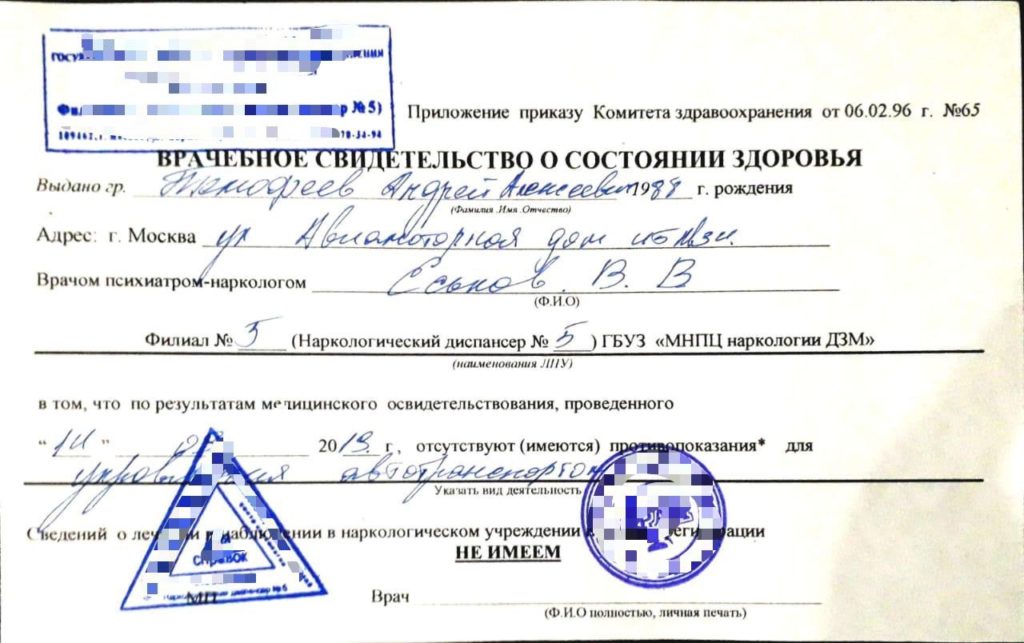 №5)
Приложение приказу Комитета здравоохранения от 06.02.96 г. №65
ВРАЧЕБНОЕ СВИДЕТЕЛЬСТВО О СОСТОЯНИИ ЗДОРОВЬЯ
Выдано гр. Тимофеев Андрей Алексеевич 1988 г. рождения
(Фамилия .Имя .Отчество)
Адрес: г. Москва ул Авиамоторная дом
Врачом психиатром-наркологом Еськов. В. В
(Ф.И.О)
Филиал № 5 (Наркологический диспансер № 5 ) ГБУЗ «МНПЦ наркологии ДЗМ»
(наименования ЛПУ)
в том, что по результатам медицинского освидетельствования, проведенного
" 14 " 2019 г, отсутствуют (имеются) противопоказания* для
управления автотранспортом
Указать вид деятельность
Сведений о наблюдении в наркологическом учреждении
НЕ ИМЕЕМ
Справок
МП
Врач
(Ф.И.О полностью, личная печать)